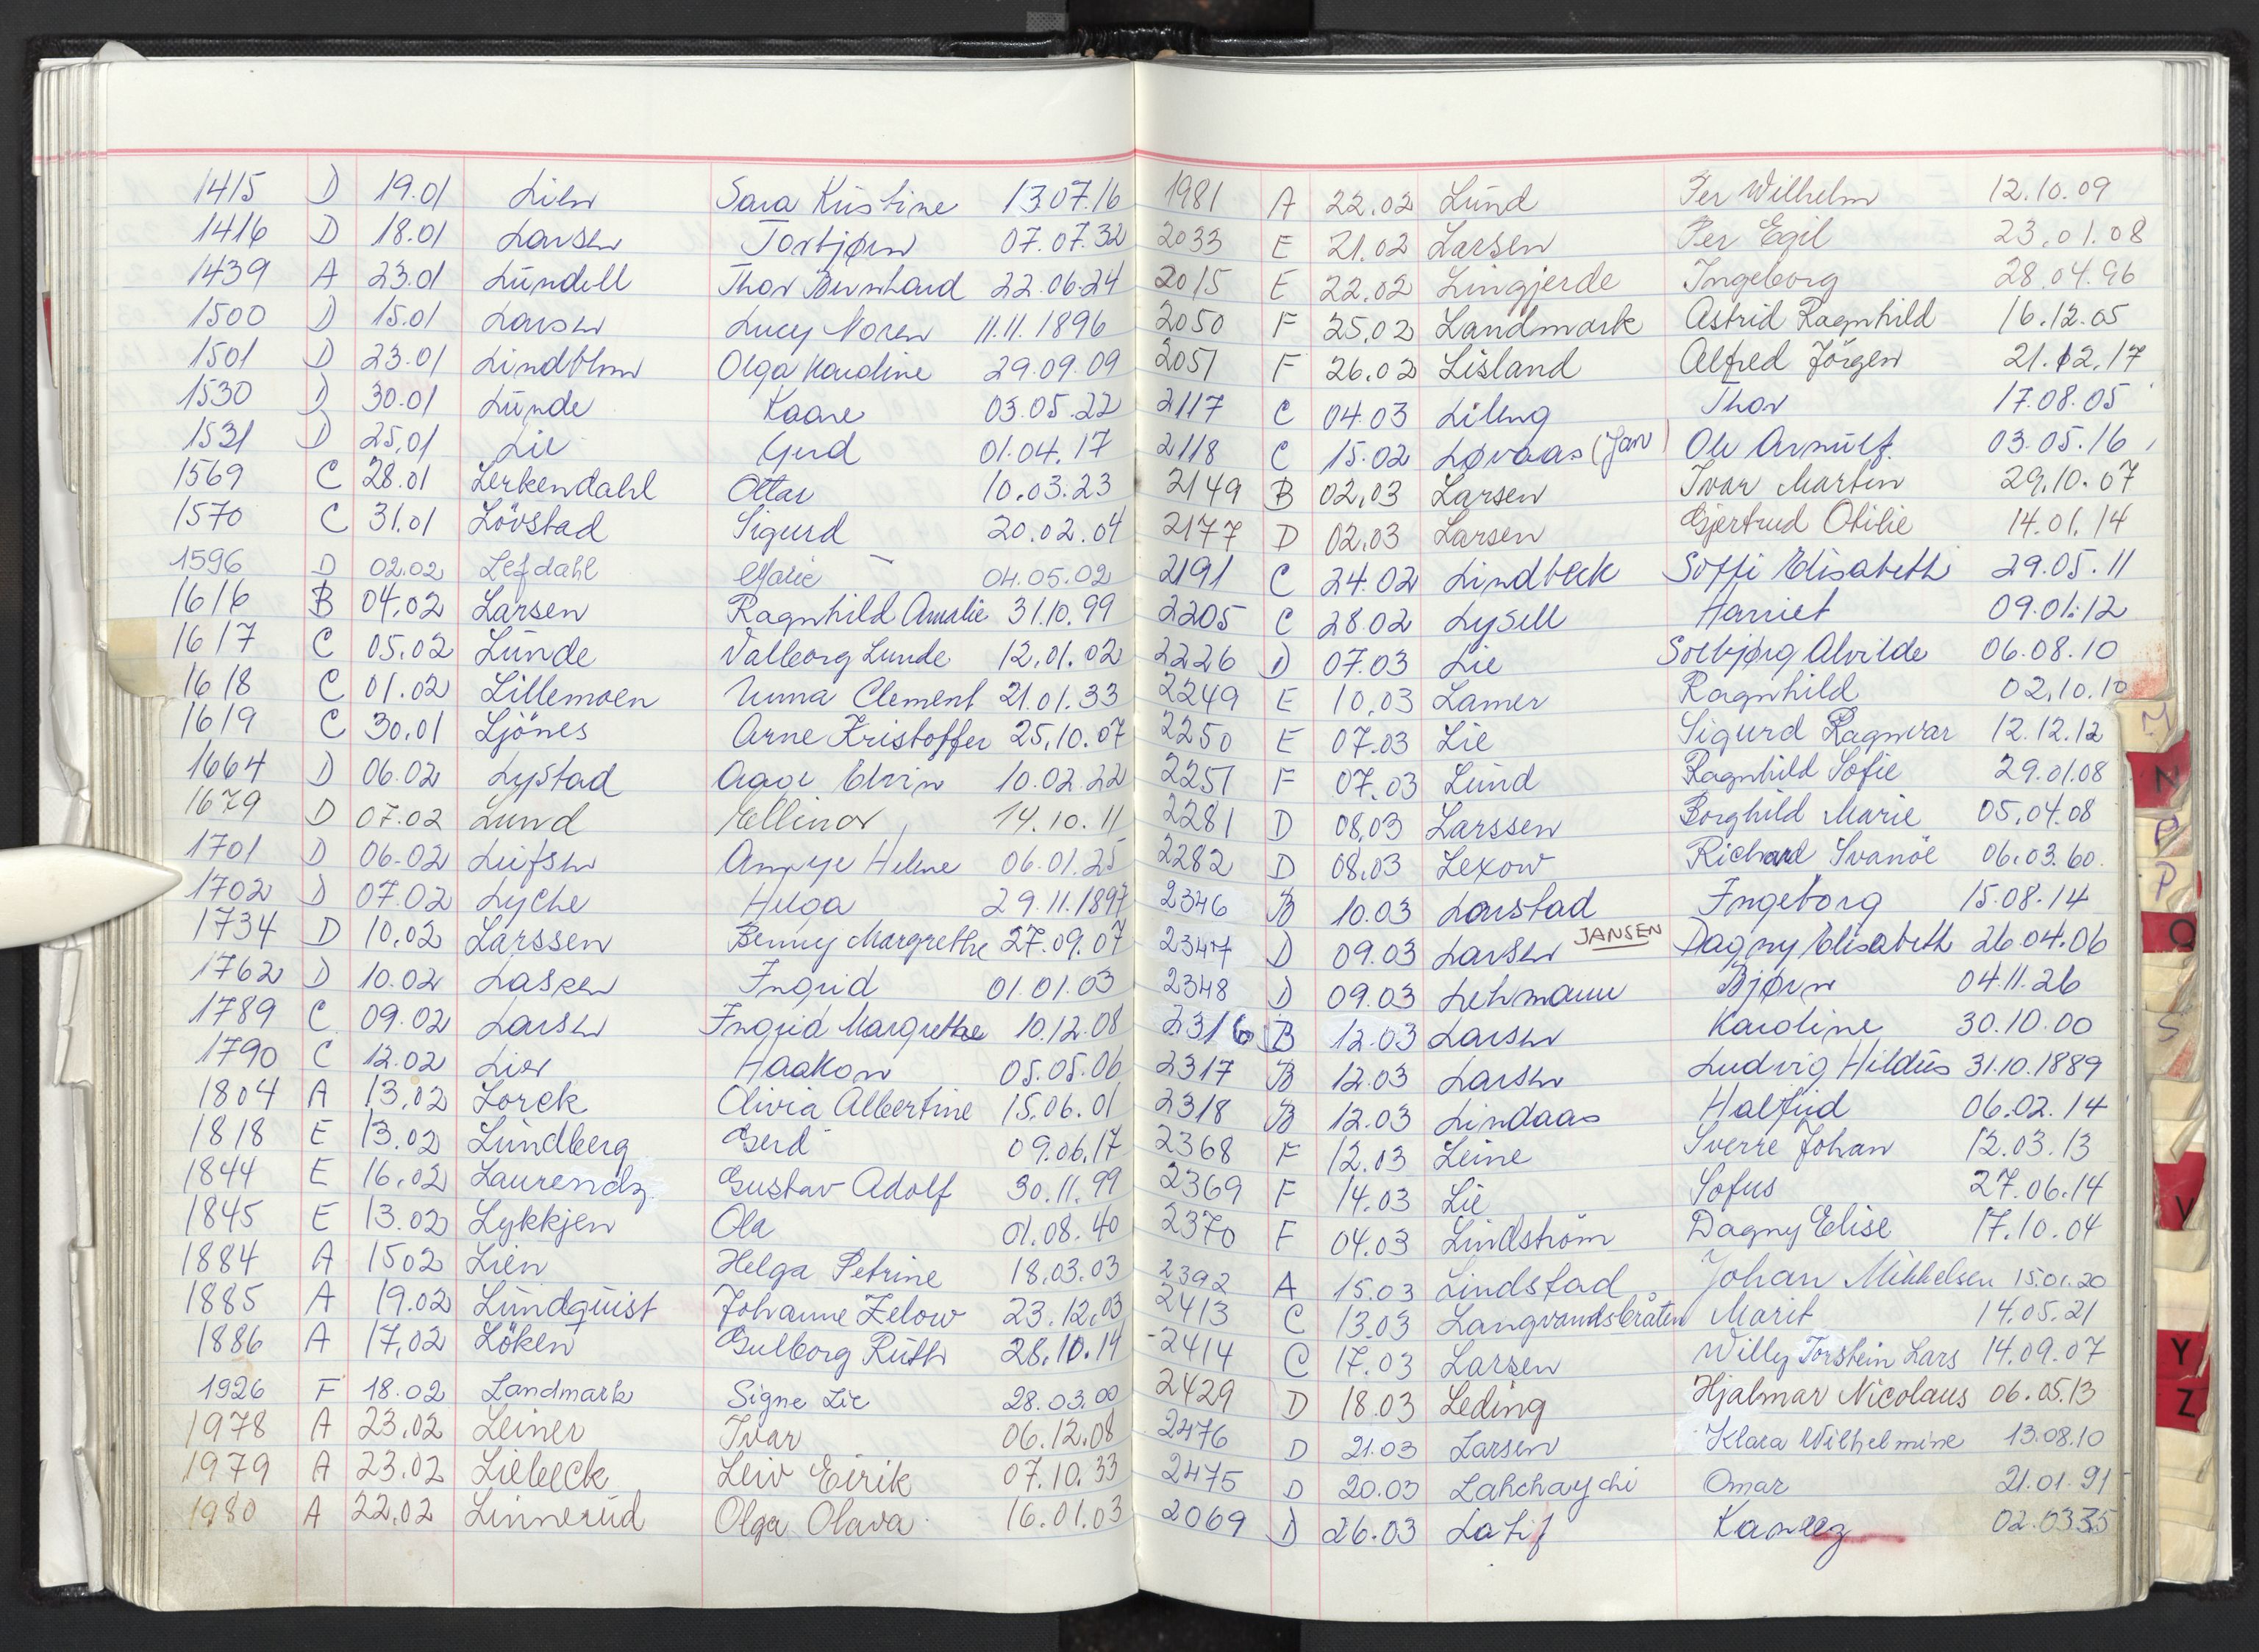 1415 D 19.01 Lien Sara Kristine 13.07.16
1416 D 18.01 Larsen Torbjørn 07.07.32
1439 A 23.01 Lundell Thor Bernhard 22.06.24
1500 D 15.01 Larsen Lucy Noren 11.11.1896
1501 D 23.01 Lindblom Olga Karoline 29.09.09
1530 D 30.01 Lunde Kaare 03.05.22
1531 D 25.01 Lie Gerd 01.04.17
1569 C 28.01 Lerkendahl Ottar 10.03.23
1570 C 31.01 Lövstad Sigurd 20.02.04
1596 D 02.02 Lefdahl Marie 04.05.02
1616 B 04.02 Larsen Ragnhild Amalie 31.10.99
1617 C 05.02 Lunde Valborg Lunde 12.01.02
1618 C 01.02 Lillemoen Unna Clement 21.01.33
1619 C 30.01 Ljönes Arne Kristoffer 25.10.07
1664 D 06.02 Lystad Aage Elvin 10.02.22
1679 D 07.02 Lund Ellinor 14.10.11
1701 D 06-02 Leifsen Helene 06.01.25
1702 D 07.02 Lyche Helga 29.11.1897
1734 D 10.02 Larssen Benny Margrethe 27.09.07
1762 D 10.02 Lasken Ingrid 01.01.03
1789 C 09.02 Larsen Ingrid Margrethe 10.12.08
1790 C 12.02 Lier Haakon 05.05.06
1804 A 13.02 Lorck Olivia Albertine 15.06.01
1818 E 13.02 Lundberg Gerd 09.06.17
1844 E 16.02 Laurendz Gustav Adolf 30.11.99
1845 E 13.02 Lykkjen Ola 01.08.40
1884 A 1502 Lien Helga Petrine 18.03.03
1885 A 19.02 Lundquist Johanne Zelow 23.12.03
1886 A 17.02 Löken Gulborg Ruth 28.10.14
1926 F 18.02 Landmark Signe Lie 28.03.00
1978 A 23.02 Leiner Ivar 06.12.08
1979 A 23.02 Liebeck Leiv Eirik 07.10.33
1980 A 22.02 Linnerud Olga Olava 16.01.03
1981 A 22.02 Lund Per Wilhelm 12.10.09
2033 E 21.02 Larsen Per Egil 23.01.08
2015 E 22.02 Lingjerde Ingeborg 28.04.96
2050 F 25.02 Landmark Astrid Ragnhild 16.12.05
2051 F 26.02 Lisland Alfred Jörgen 21.12.17
2117 C 04.03 Lileng Thor 17.08.05
2118 C 15.02 Løvaas (Jan) Ole Arnulf 03.05.16
2149 B 02.03 Larsen Ivar Martin 29.10.07
2177 D 02.03 Larsen Gjertrud Otilie 14.01.14
2191 C 24.02 Lindbeck Soffi Elisabeth 29.05.11
2205 C 28.02 Lysell Harriet 09.01.12
2226 D 07.03 Lie Solbjørg Alvilde 06.08.10
2249 E 10.03 Lamer Ragnhild 02.10.10
2250 E 07.03 Lie Sigurd Ragnvar 12.12.12
2251 F 07.03 Lund Ragnhild Sofie 29.01.08
2281 D 08.03 Larssen Borghild Marie 05.04.08
2282 D 08.03 Lexow Richard Svanöe 06.03.60.
2346 B 10.03 Larstad Ingeborg 15.08.14
2347 D 09.03 Larsen JANSEN Dagny Elisabeth 26.04.06
2348 D 09.03 Lehmann Bjørn 04.11.26
2316 B 12.03 Larsen Karoline 30.10.00
2317 B 12.03 Larsen Ludvig Hildus 31.10.1889
2318 B 12.03 Lindaas Halfrid 06.02.14
2368 F 12.03 Leine Sverre Johan 12.03.13
2369 F 14.03 Lie Sofus 27.06.14
2370 F 04.03 Lindström Dagny Elise 17.10.04
2392 A 15.03 Lindstad Johan Mikkelsen 15.01.20
2413 C 13.03 Langvandsbråten Marit 14.05.21
2414 C 17.03 Larsen Willy Torstein Lars 14.09.07
2429 D 18.03 Leding Hjalmar Nicolaus 06.05.13
2476 D 21.03 Larsen Klara Wilhelmine 13.08.10
2475 D 20.03 Lahchaychi Omar 21.01.91
2069 D 26.03 Latif Kaneez 02.0335
N
P
P
Q
S
V
Y
Z